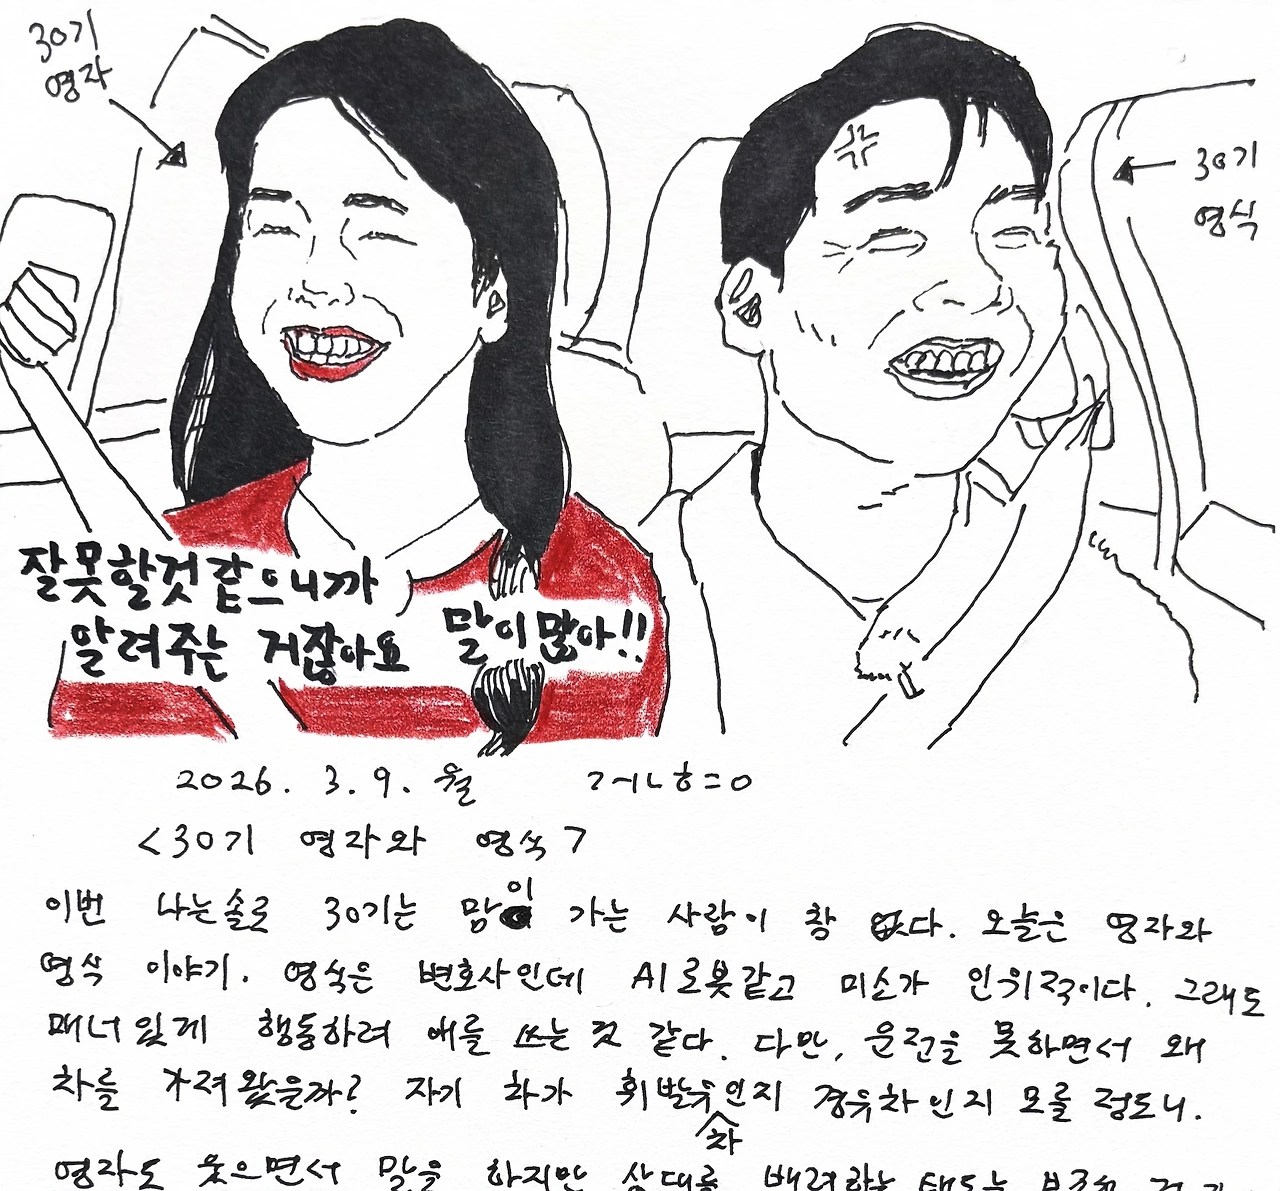 30기
영자
30기
영식
잘못할것 같으니까
알려주는 거잖아요
말이 많아!!
2026. 3. 9. 월
<30기 영자와 영식>
이번 나는솔로 30기는 맘이 가는 사람이 참 없다. 오늘은 영자와
영식 이야기. 영식은 변호사인데 AI로봇같고 미소가 인위적이다. 그래도
매너있게 행동하려 애를 쓰는 것 같다. 다만, 운전을 못하면서 왜
차를 가져왔을까? 자기 차가 휘발유차인지 경유차인지 모를 정도니.
영자도 웃으면서 말을 하지만 상대를 배려하는 태도는 부족한